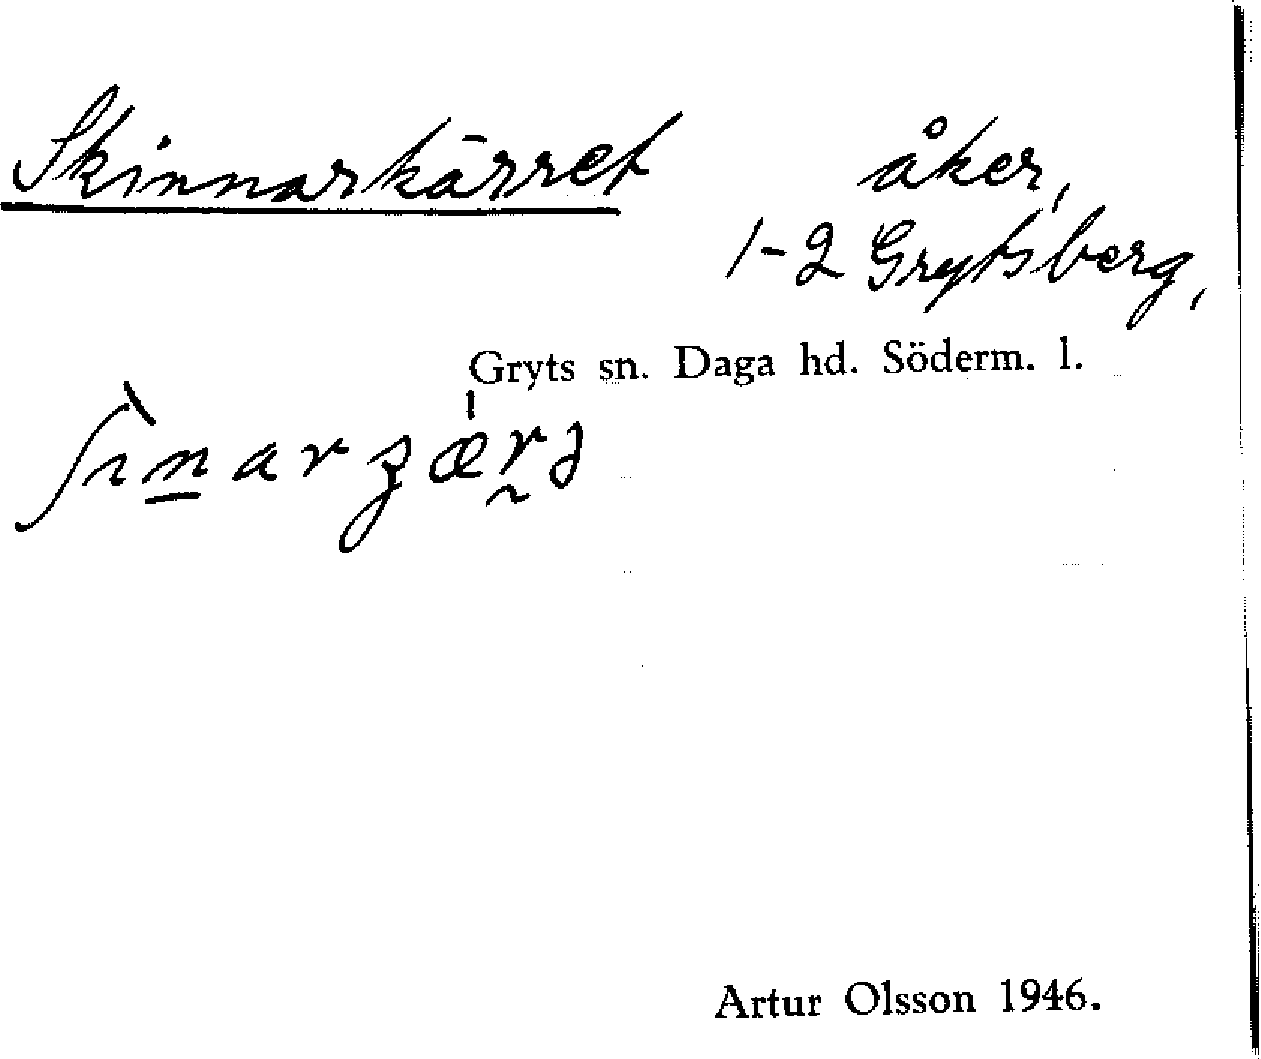 Skinnarkärret åker,
1-2 Grytsberg,
Gryts sn. Daga hd. Söderm. l.
Artur Olsson 1946.